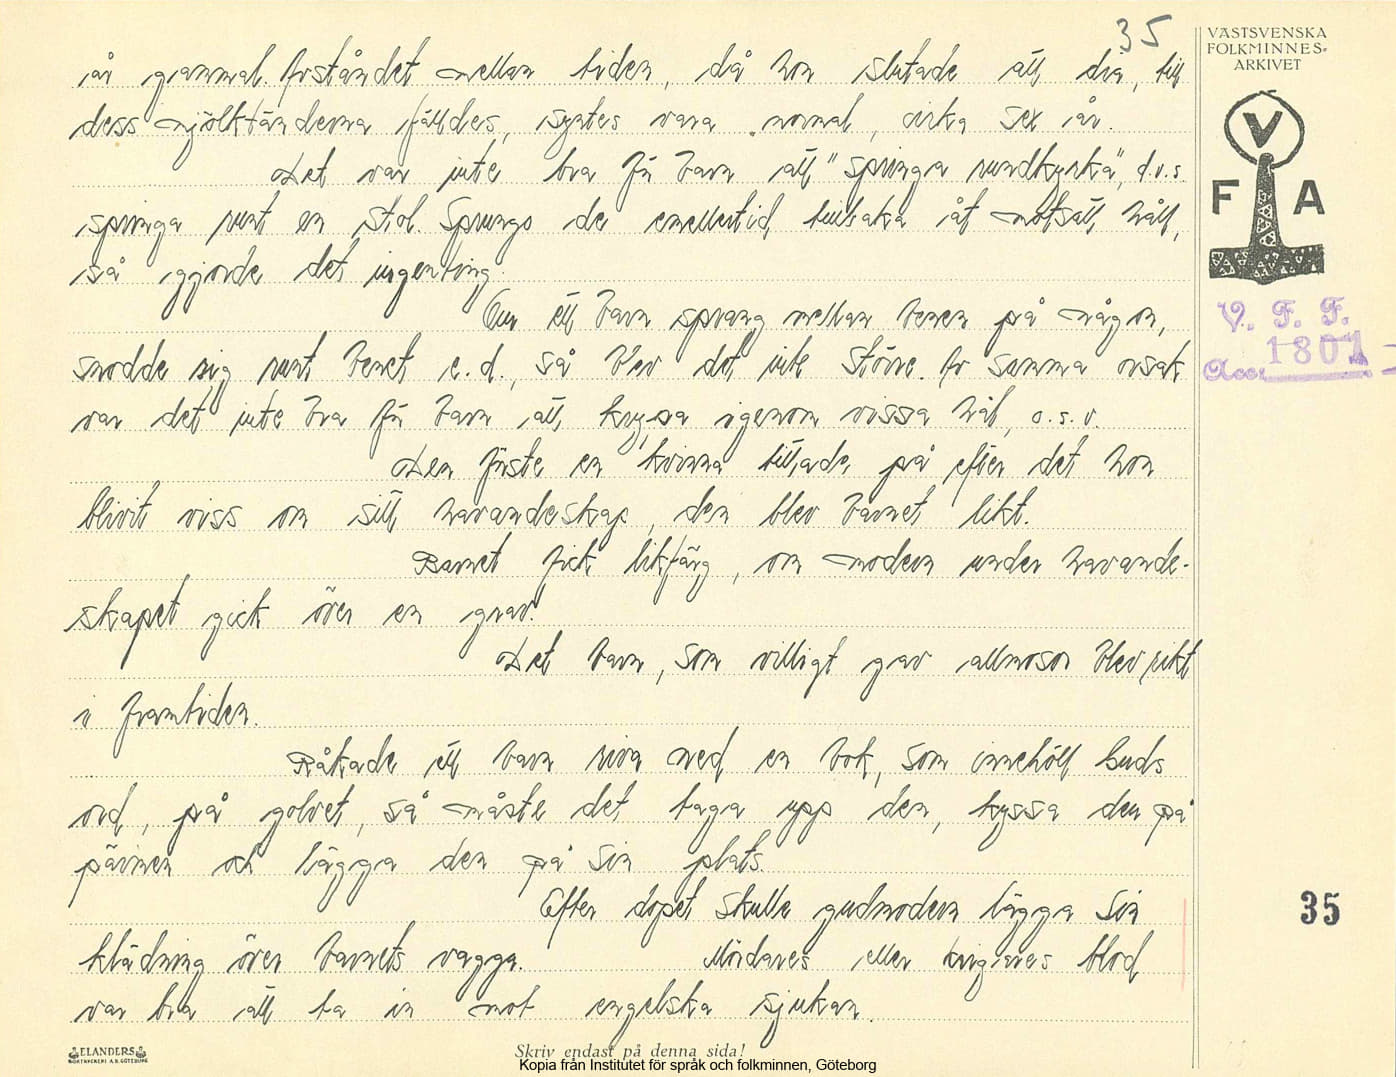 35
VÄSTSVENSKA
FOLKMINNES-
ARKIVET
V
F A
V. F. F.
Acc. 1801
år gammal. Avståndet mellan tiden, då hon slutade att dia, till
dess mjölktänderna fälldes, syntes vara normal, cirka sex år.
Det var inte bra för barn att "springa rundkyrka", d.v.s
springa runt en stol. Sprungo de emellertid tillbaka åt motsatt håll,
så gjorde det ingenting.
Om ett barn sprang mellan benen på någon,
snodde sig runt benet e.d., så blev det inte större. Av samma orsak
var det inte bra för barn att krypa igenom vissa hål, o.s.v.
Den förste en kvinna tittade på efter det hon
blivit viss om sitt havandeskap, den blev barnet likt.
Barnet fick likfärg, om modern under havande-
skapet gick över en grav.
Det barn, som villigt gav allmosor blev rikt
i framtiden.
Råkade ett barn riva ned en bok, som innehöll Guds
ord, på golvet, så måste det taga upp den, kyssa den på
pärmen och lägga den på sin plats.
Efter dopet skulle gudmodern lägga sin
klädning över barnets vagga. Mördares eller krigares blod
var bra att ta in mot engelska sjukan.
35
ELANDERS
BOKTRYCKERI A.B. GÖTEBORG
Skriv endast på denna sida!
Kopia från Institutet för språk och folkminnen, Göteborg